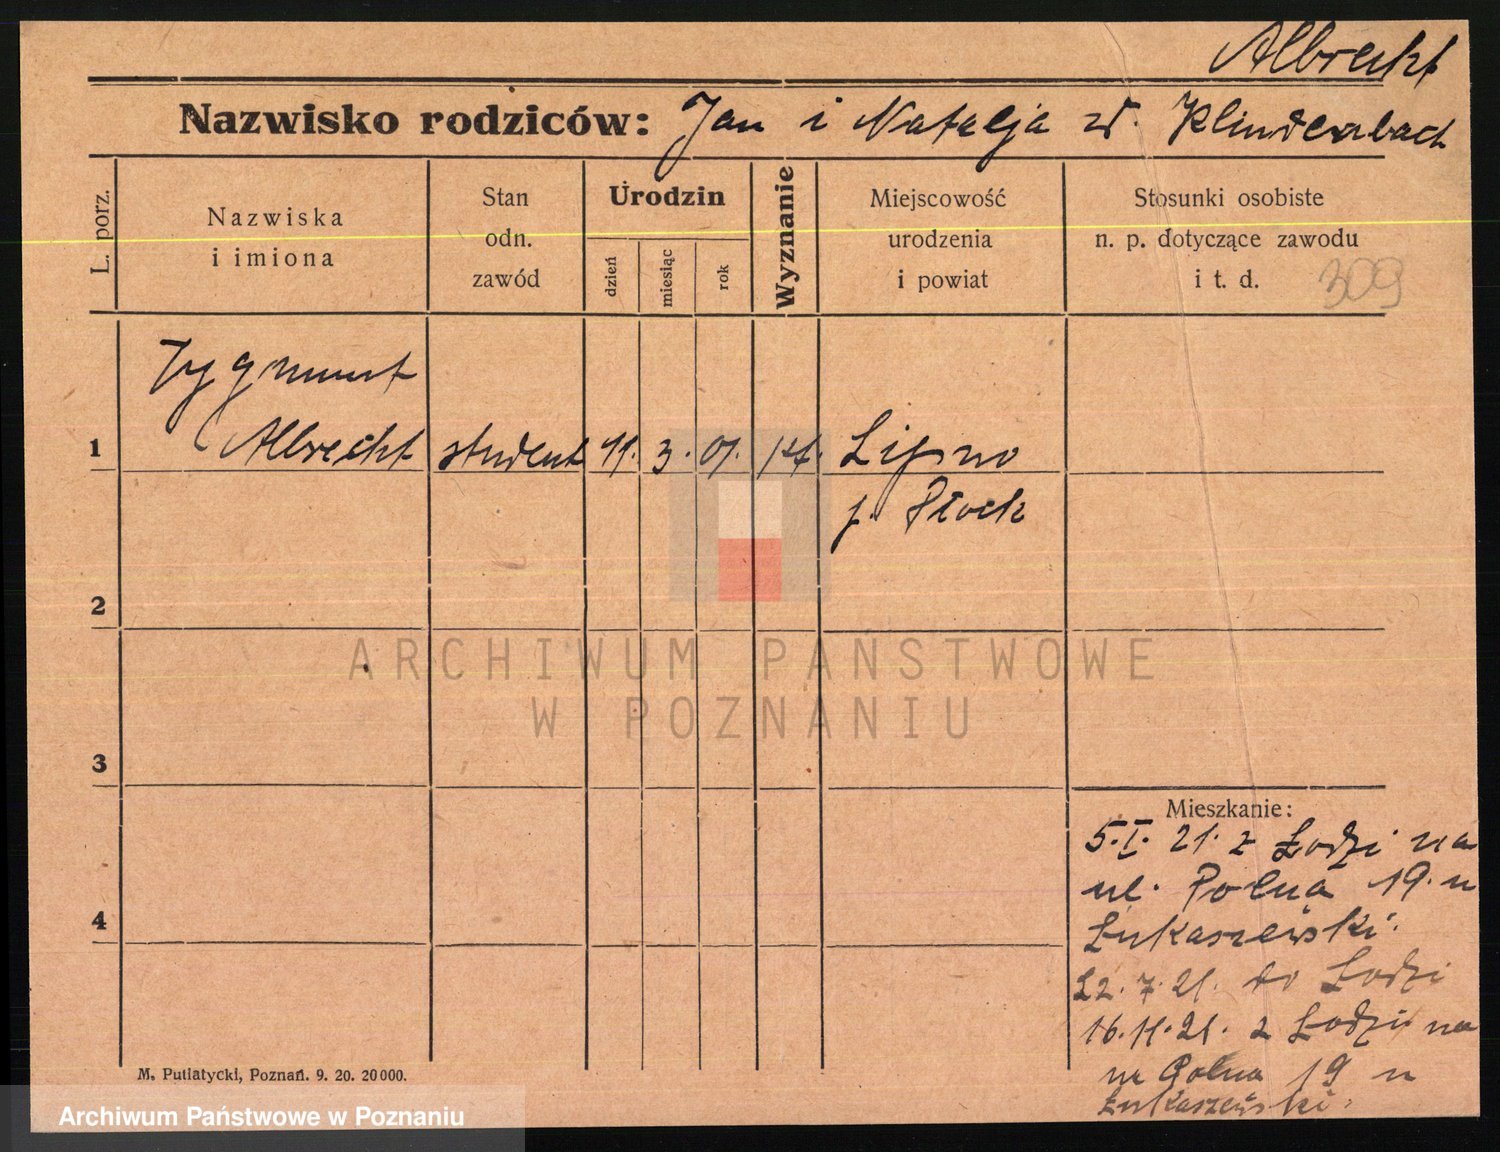 Albrecht
Nazwisko rodziców: Jan i Natalja z d. Klindenbach
L. porz.
Nazwiska
i imiona
Stan
odn.
zawód
Urodzin
dzień
miesiąc
rok
Wyznanie
Miejscowość
urodzenia
i powiat
Stosunki osobiste
n. p. dotyczące zawodu
i t. d.
309
Zygmunt
1 Albrecht student 11. 3. 01. Lipno
p. Płock
2
ARCHIWUM PAŃSTWOWE
W POZNANIU
3
Mieszkanie:
5.I. 21. z Łodzi na
ul. Polna 19. u
4 Łukaszewski.
22. 7. 21. do Łodzi
16.11.21. z Łodzi na
Polna 19 u
Łukaszewski.
M. Putiatycki, Poznań. 9. 20. 20 000.
Archiwum Państwowe w Poznaniu